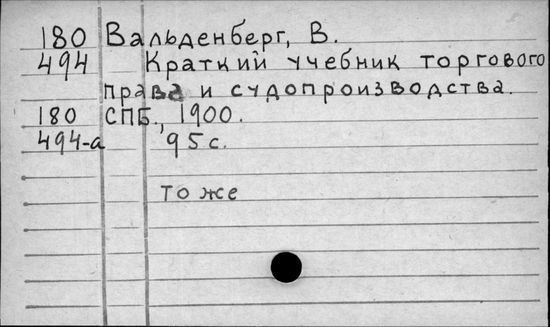 180 Вальденберг, В.
494 Краткий учебник торгового
права и судопроизводства.
180 СПБ., 1900.
494-а 95 с.
То же